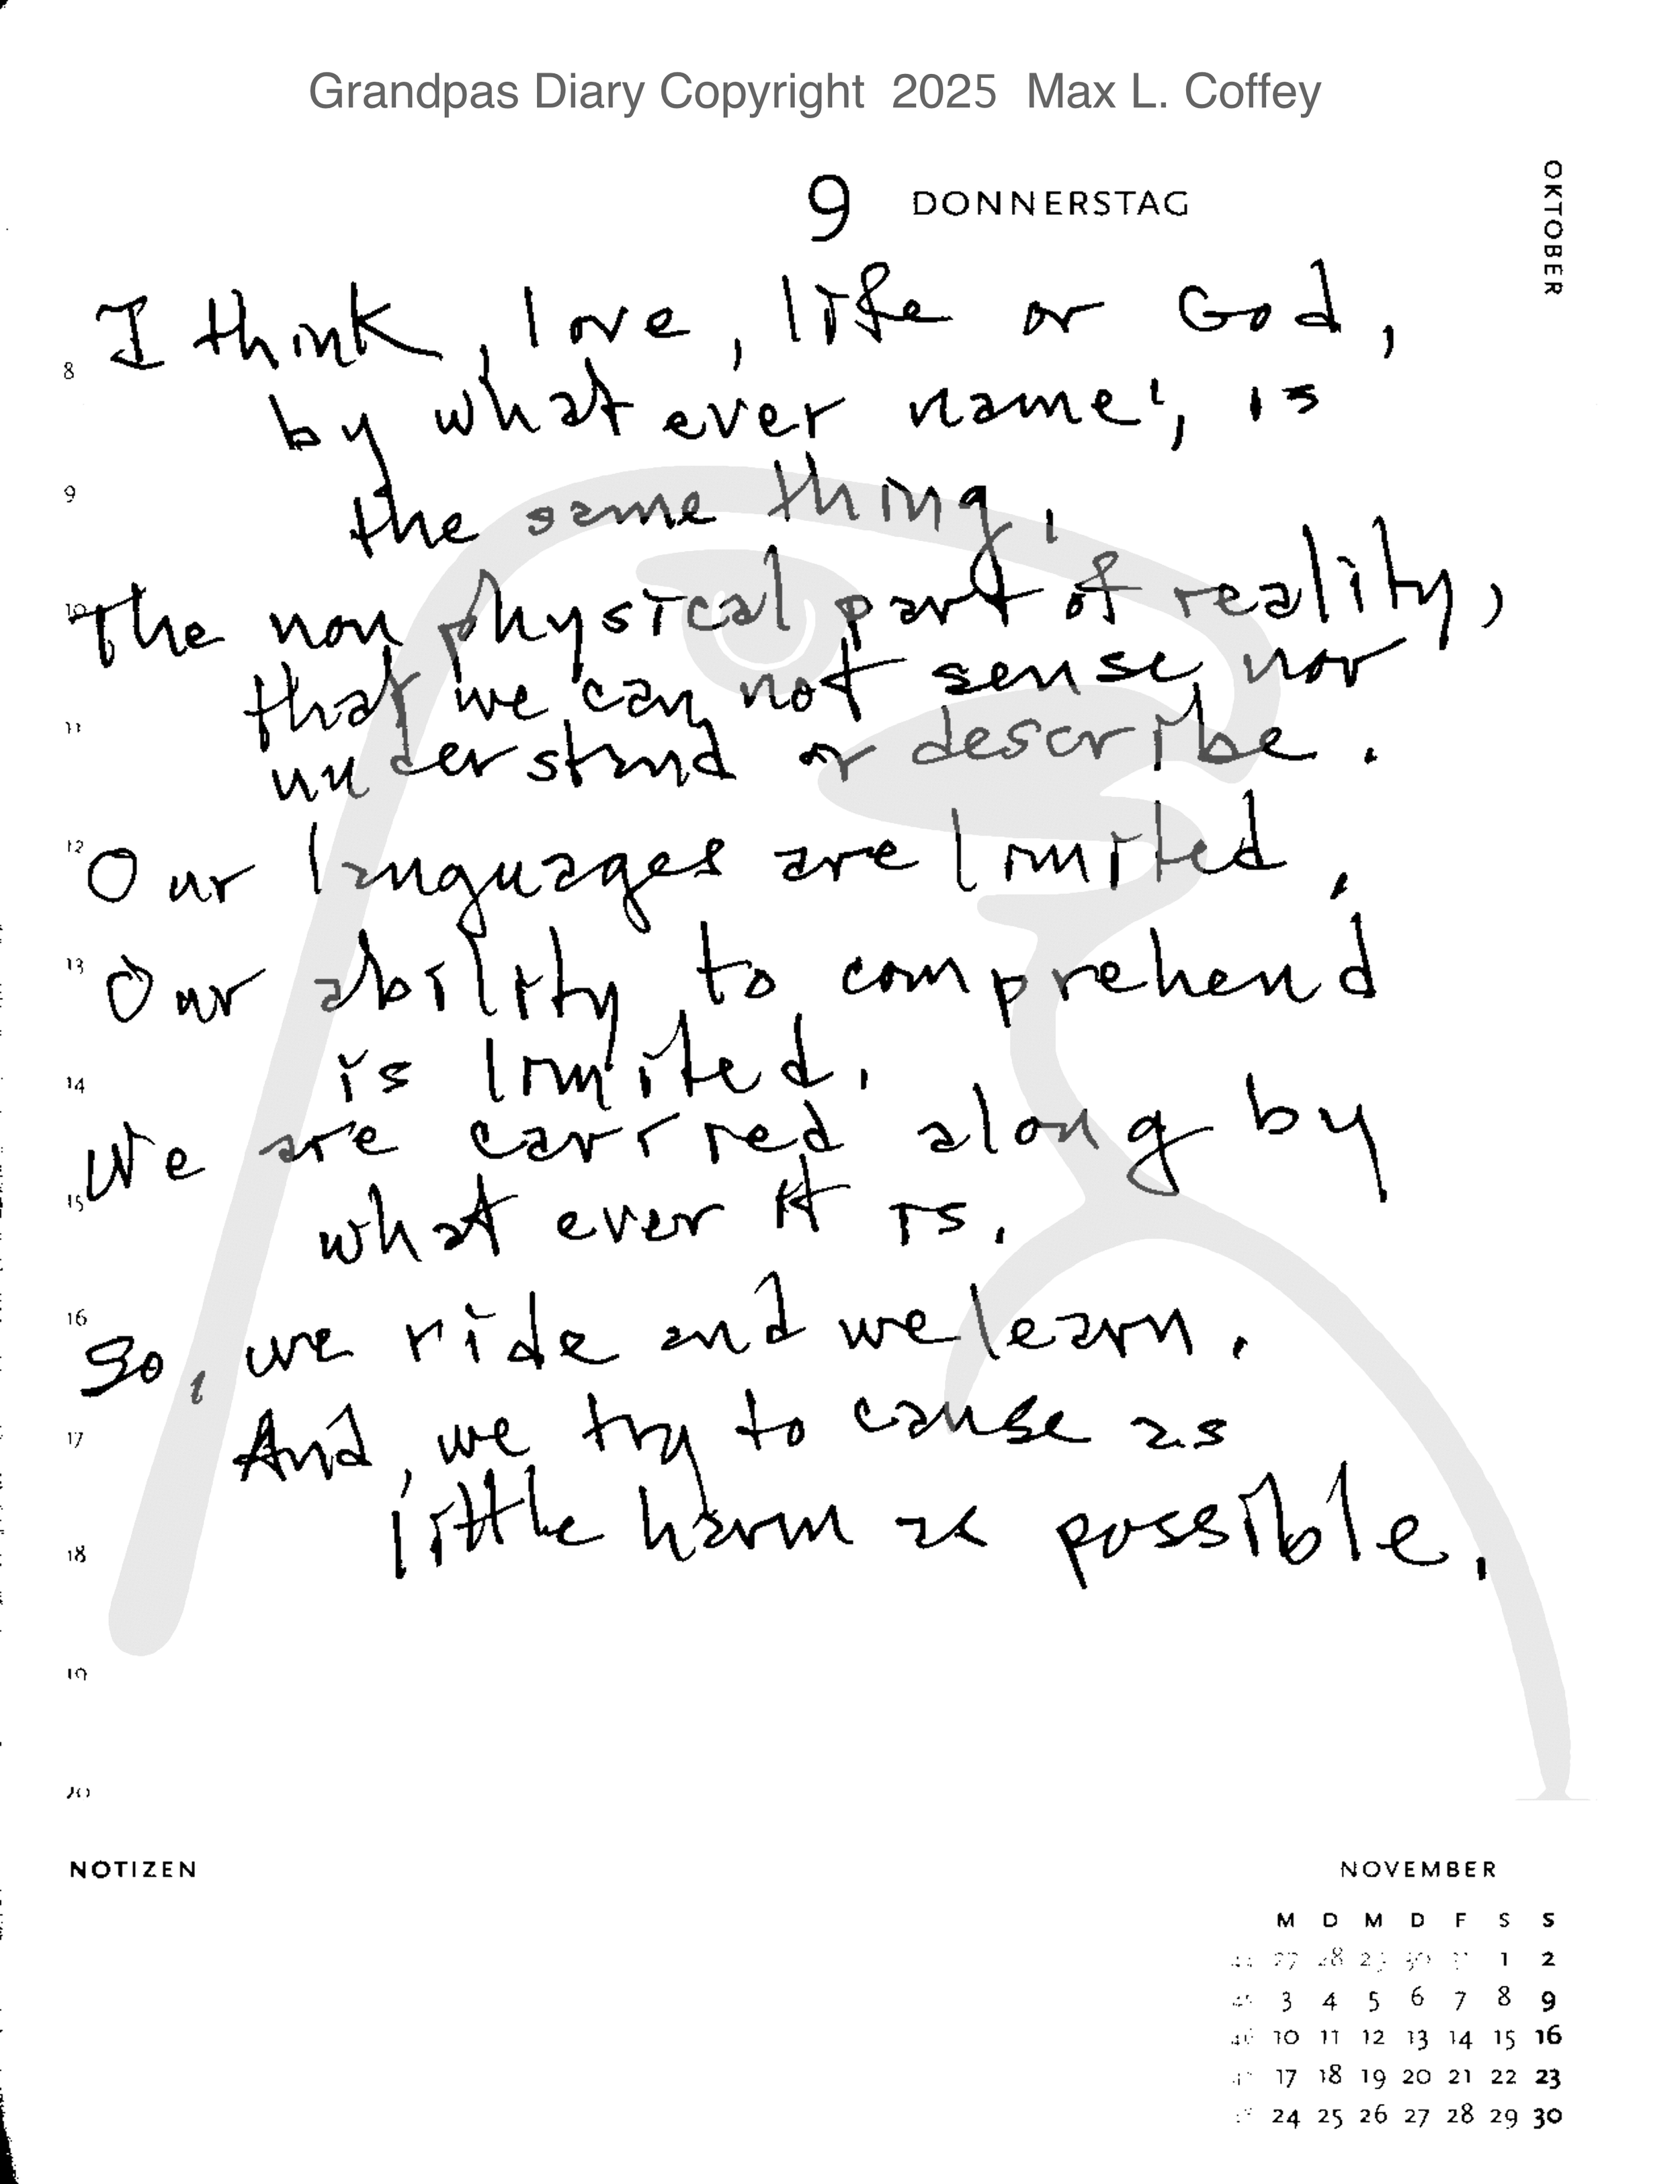 Grandpas Diary Copyright 2025 Max L. Coffey
9 DONNERSTAG
OKTOBER
I think, love, life or God,
8
by what ever name', is
9
the same thing.
10
The non physical part of reality,
that we can not sense, nor
11
understand or describe.
12
Our languages are limited.
13
Our ability to comprehend
14
is limited.
We are carried along by
15
what ever it is.
16
So, we ride and we learn.
17
And, we try to cause as
little harm as possible.
18
19
20
NOTIZEN
NOVEMBER
M D M D F S S
44 27 28 29 30 31 1 2
45 3 4 5 6 7 8 9
46 10 11 12 13 14 15 16
17 18 19 20 21 22 23
24 25 26 27 28 29 30